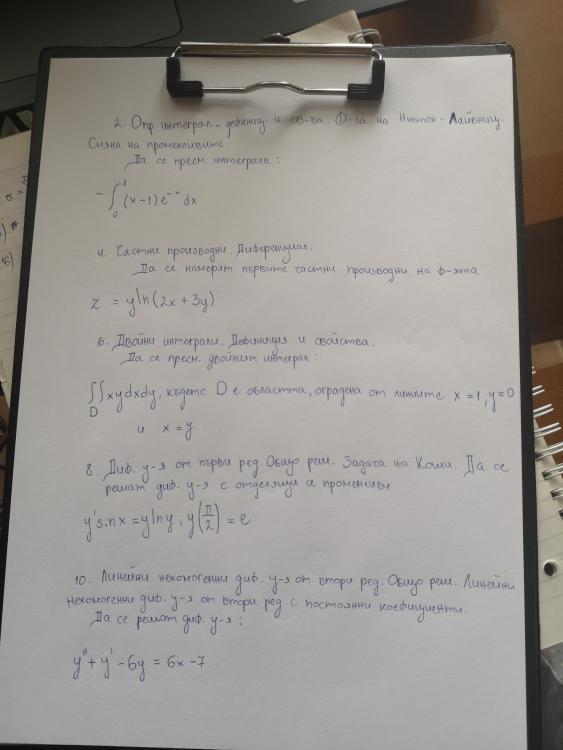 2. Опр. интеграл - дефиниц. и св-ва. Ф-ла на Нютон - Лайбниц.
Смяна на променливите.
Да се пресм. интеграла:
- ∫₀¹ (x-1)e^{-x} dx
4. Частни производни. Диференциал.
Да се намерят първите частни производни на ф-ята
z = y ln(2x + 3y)
6. Двойни интеграли. Дефиниция и свойства.
Да се пресм. двойният интеграл:
∬_D xydxdy, където D е областта, оградена от линиите x = 1, y = 0
и x = y
8. Диф. у-я от първи ред. Общо реш. Задача на Коши. Да се
решат диф. у-я с отделящи се променливи
y' sinx = y lny, y(π/2) = e
10. Линейни нехомогенни диф. у-я от втори ред. Общо реш. Линейни
нехомогенни диф. у-я от втори ред с постоянни коефициенти.
Да се решат диф. у-я:
y'' + y' - 6y = 6x - 7